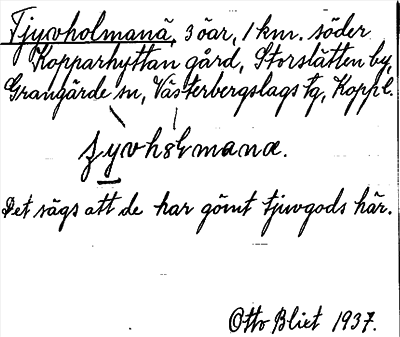 Tjyvholmanä, 3 öar, 1 km. söder
Kopparhyttan gård, Storslätten by,
Grangärde sn, Västerbergslags tg, Koppl.
ʒyvhɵlmanæ.
Det sägs att de har gömt tjuvgods här.
Otto Bliet 1937.